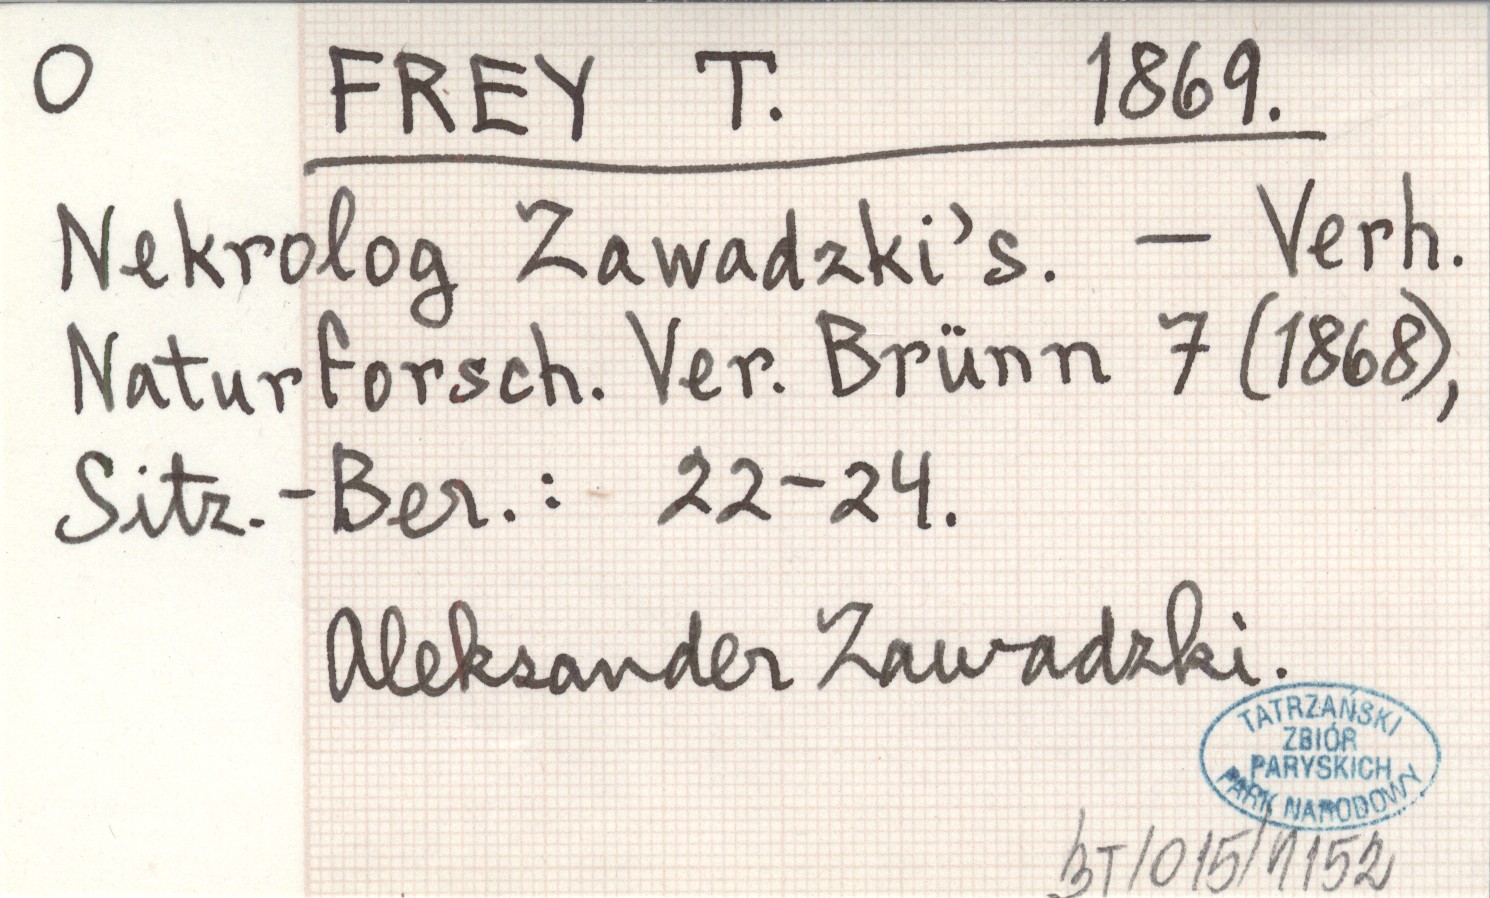 O FREY T. 1869.
Nekrolog Zawadzki's. — Verh.
Naturforsch. Ver. Brünn 7 (1868),
Sitz.-Ber.: 22-24.
Aleksander Zawadzki.
TATRZAŃSKI
ZBIÓR
PARYSKICH
PARK NARODOWY
BT/015/1152